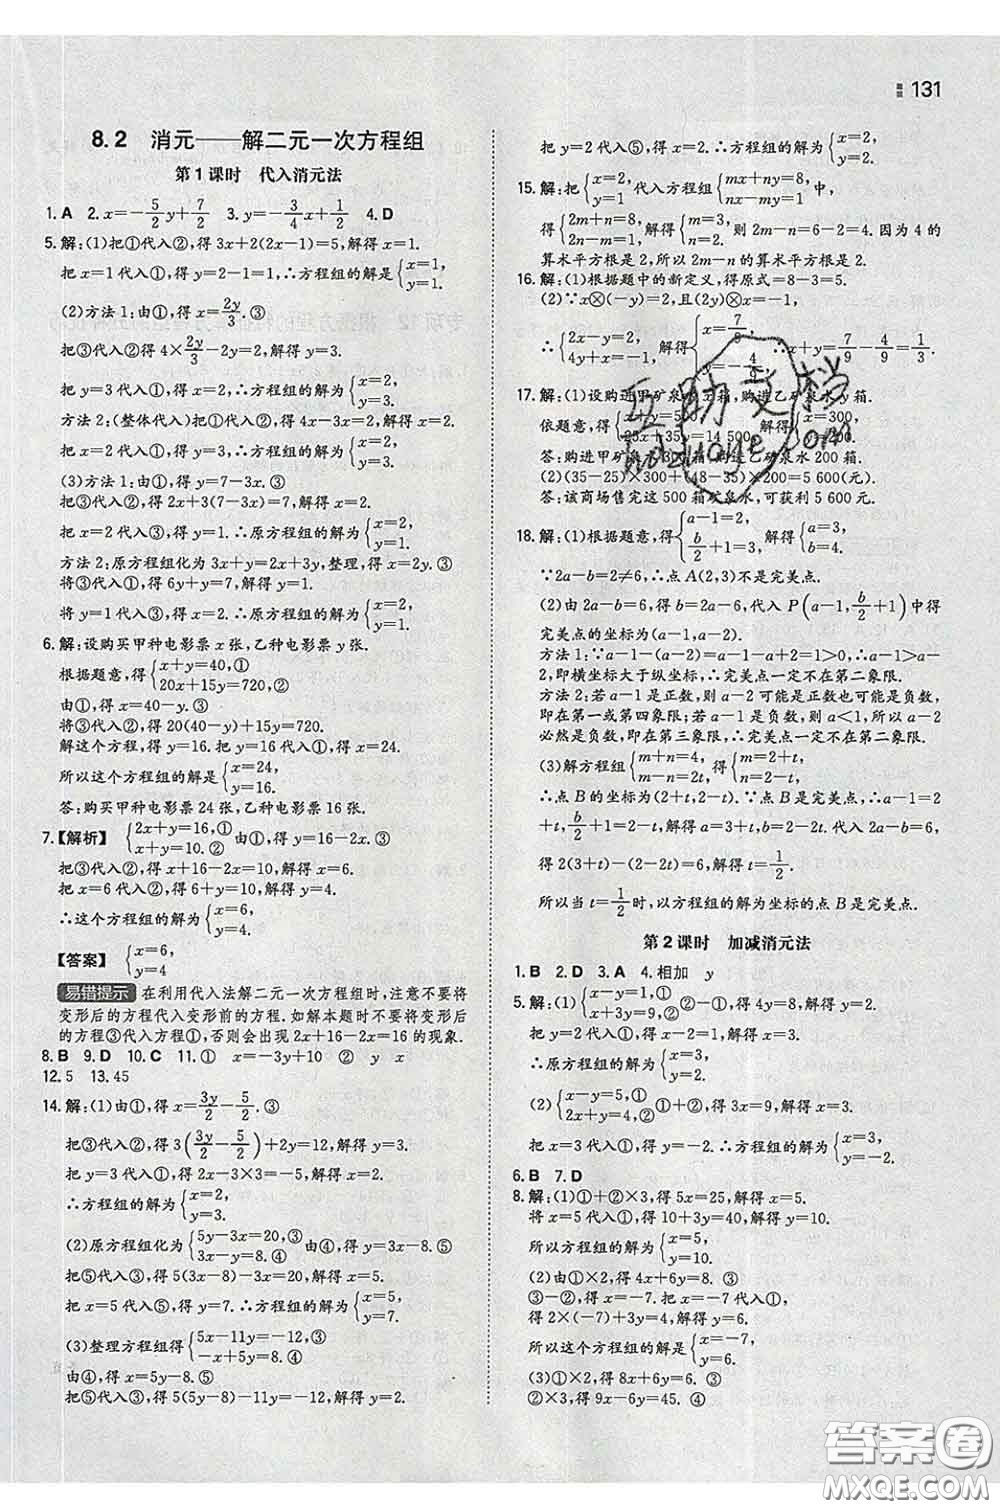 131
8.2 消元——解二元一次方程组
第1课时 代入消元法
1. A 2. x=-5/2y+7/2 3. y=-3/4x+1/2 4. D
5. 解:(1)把①代入②,得 3x+2(2x-1)=5,解得 x=1.
把 x=1代入①,得 y=2-1=1,∴方程组的解是{x=1, y=1.
(2)方法1:由①,得 x=2y/3.③
把③代入②,得 4×2y/3-2y=2,解得 y=3.
把 y=3代入③,得 x=2. ∴方程组的解为{x=2, y=3.
方法2:(整体代入)由①,得
把③代入②,得
把 y=3代入①,得 x=2. ∴方程组的解为{x=2, y=3.
(3)方法1:由①,得 y=7-3x.③
把③代入②,得 2x+3(7-3x)=7,解得 x=2.
把 x=2代入③,得 y=1. ∴原方程组的解为{x=2, y=1.
方法2:原方程组化为 3x+y=2x+3y,整理,得 x=2y.③
将③代入①,得 6y+y=7,解得 y=1.
将 y=1代入③,得 x=2. ∴原方程组的解为{x=2, y=1.
6. 解:设购买甲种电影票 x 张,乙种电影票 y 张.
根据题意,得{x+y=40,① 20x+15y=720,②
由①,得 x=40-y.③
把③代入②,得 20(40-y)+15y=720.
解这个方程,得 y=16. 把 y=16代入①,得 x=24.
所以这个方程组的解是{x=24, y=16.
答:购买甲种电影票 24 张,乙种电影票 16 张.
7.【解析】{2x+y=16,① x+y=10.② 由①,得 y=16-2x.③
把③代入②,得 x+16-2x=10,解得 x=6.
把 x=6代入②,得 6+y=10,解得 y=4.
∴这个方程组的解为{x=6, y=4.
【答案】{x=6, y=4
易错提示 在利用代入法解二元一次方程组时,注意不要将
变形后的方程代入变形前的方程. 如解本题时不要将变形后
的方程③代入方程①,否则会出现 2x+16-2x=16 的现象.
8. B 9. D 10. C 11. ① x=-3y+10 ② y x
12. 5 13. 45
14. 解:(1)由①,得 x=3y/2-5/2.③
把③代入②,得 3(3y/2-5/2)+2y=12,解得 y=3.
把 y=3代入①,得 2x-3×3=-5,解得 x=2.
∴方程组的解为{x=2, y=3.
(2)原方程组化为{5y-3x=20,③ y-3x=-8.④ 由④,得 y=3x-8.⑤
把⑤代入③,得 5(3x-8)-3x=20,解得 x=5.
把 x=5代入⑤,得 y=7. ∴方程组的解为{x=5, y=7.
(3)整理方程组,得{5x-11y=-12,③ -x+5y=8.④
由④,得 x=5y-8.⑤
把⑤代入③,得 5(5y-8)-11y=-12,解得 y=2.
把 y=2代入⑤,得 x=2. ∴方程组的解为{x=2, y=2.
15. 解:把{x=2, y=1代入方程组{mx+ny=8, nx-my=1中,
得{2m+n=8, 2n-m=1. 解得{m=3, n=2. 则 2m-n=6-2=4. 因为 4 的
算术平方根是 2, 所以 2m-n 的算术平方根是 2.
16. 解:(1)根据题中的新定义,得原式=8-3=5.
(2)∵x⊗(-y)=2,且(2y)⊗x=-1,
∴{2x-y=2, 4y+x=-1. 解得{x=7/9, y=-4/9. ∴x+y=7/9-4/9=1/3.
17. 解:(1)设购进甲矿泉水 x 箱,购进乙矿泉水 y 箱.
依题意,得{x+y=500, 25x+35y=14 500. 解得{x=300, y=200.
答:购进甲矿泉水 300 箱,购进乙矿泉水 200 箱.
(2)(35-25)×300+(48-35)×200=5 600(元).
答:该商场售完这 500 箱矿泉水,可获利 5 600 元.
18. 解:(1)根据题意,得{a-1=2, b/2+1=3, 解得{a=3, b=4.
∵2a-b=2≠6,∴点 A(2,3)不是完美点.
(2)由 2a-b=6,得 b=2a-6,代入 P(a-1,b/2+1)中得
完美点的坐标为(a-1,a-2).
方法1:∵a-1-(a-2)=a-1-a+2=1>0,∴a-1>a-2,
即横坐标大于纵坐标,∴完美点一定不在第二象限.
方法2:若 a-1 是正数,则 a-2 可能是正数也可能是负数,
即在第一或第四象限;若 a-1 是负数,则 a<1,所以 a-2
必然是负数,在第三象限,∴完美点一定不在第二象限.
(3)解方程组{m+n=4, m-n=2t,得{m=2+t, n=2-t,
∴点 B 的坐标为(2+t,2-t). ∵点 B 是完美点,∴a-1=2
+t,b/2+1=2-t,解得 a=3+t,b=2-2t. 代入 2a-b=6,
得 2(3+t)-(2-2t)=6,解得 t=1/2.
所以当 t=1/2时,以方程组的解为坐标的点 B 是完美点.
第2课时 加减消元法
1. B 2. D 3. A 4. 相加 y
5. 解:(1){x-y=1,① x+3y=9,② ②-①,得 4y=8,解得 y=2.
把 y=2代入①,得 x-2=1,解得 x=3.
∴原方程组的解为{x=3, y=2.
(2){x-y=5,① 2x+y=4,② ①+②,得 3x=9,解得 x=3.
把 x=3代入①,得 y=-2. ∴方程组的解为{x=3, y=-2.
6. B 7. D
8. 解:(1)①+②×3,得 5x=25,解得 x=5.
将 x=5代入①,得 10+3y=40,解得 y=10.
所以方程组的解为{x=5, y=10.
(2)由①×2,得 4x+6y=8.③
③-②,得 x=-7. 把 x=-7代入①,
得 2×(-7)+3y=4,解得 y=6.
所以这个方程组的解为{x=-7, y=6.
(3)①×2,得 8x+6y=6.③
②×3,得 9x-6y=45.④
互助文档
hdzuoye.com
答案圈
MXQE.COM